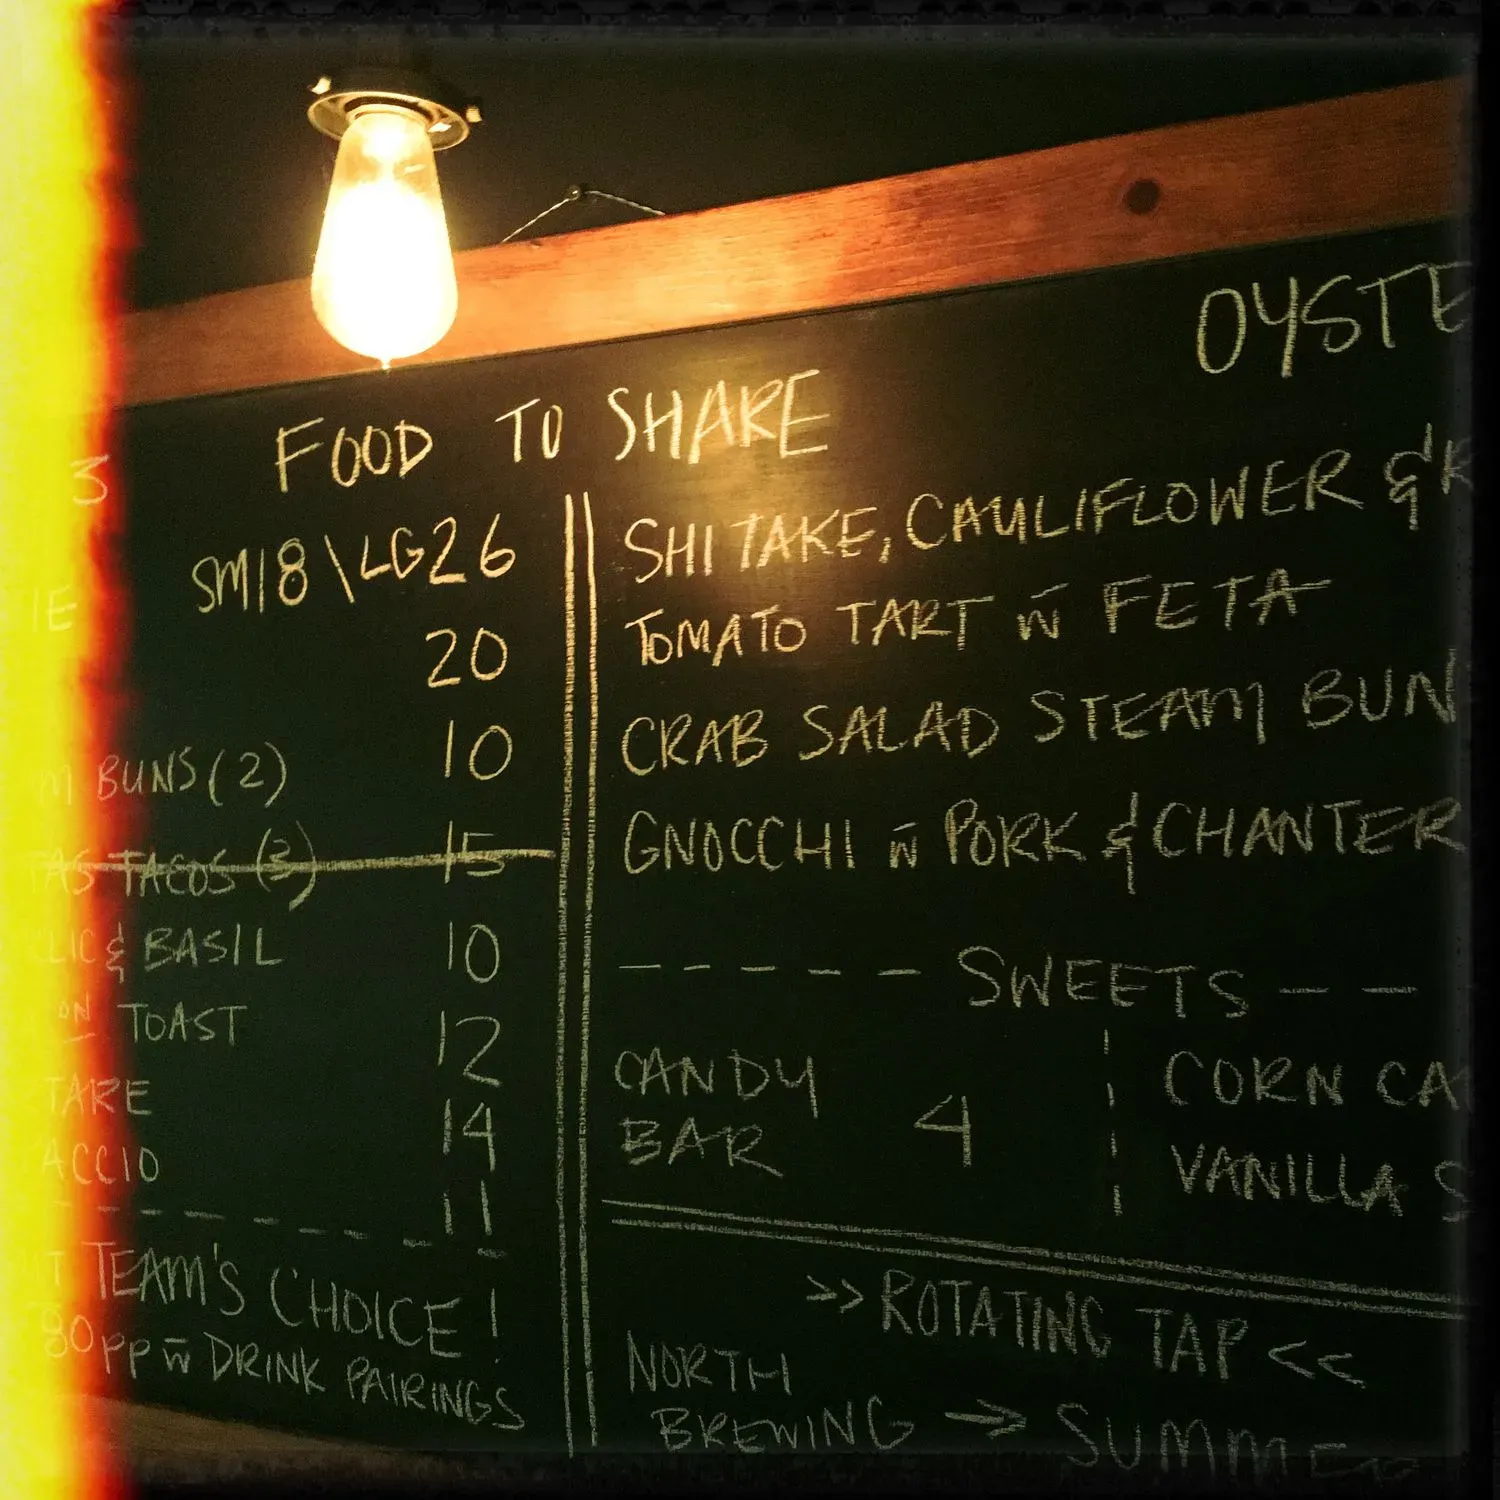 OYSTE
FOOD TO SHARE
3
SM18\LG26
IE
20
10
M BUNS (2)
AS TACOS (3) 15
LIC & BASIL 10
ON TOAST 12
TARE 14
ACCIO 11
TEAM'S CHOICE!
80PP W DRINK PAIRINGS
SHITAKE, CAULIFLOWER &
TOMATO TART W FETA
CRAB SALAD STEAM BUN
GNOCCHI W PORK & CHANTER
SWEETS
CANDY
BAR 4
CORN CA
VANILLA S
>> ROTATING TAP <<
NORTH
BREWING → SUMME